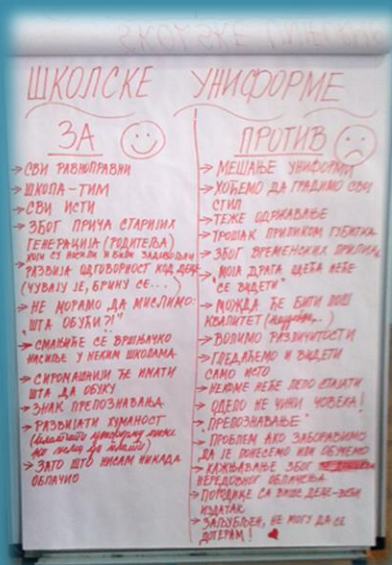 ШКОЛСКЕ УНИФОРМЕ
ЗА
→ СВИ РАВНОПРАВНИ
→ ШКОЛА - ТИМ
→ СВИ ИСТИ
→ ЗБОГ ПРИЧА СТАРИЈИХ
ГЕНЕРАЦИЈА (РОДИТЕЉА)
КОЈИ СУ НОСИЛИ И БИЛИ ЗАДОВОЉНИ
РАЗВИЈА ОДГОВОРНОСТ КОД ДЕЦЕ
(ЧУВАЈУ ЈЕ, БРИНУ СЕ...)
→ НЕ МОРАМО ДА МИСЛИМО:
"ШТА ОБУЋИ?!"
→ СМАЊИЋЕ СЕ ВРШЊАЧКО
НАСИЉЕ У НЕКИМ ШКОЛАМА
→ СИРОМАШНИЈИ ЋЕ ИМАТИ
ШТА ДА ОБУКУ
→ ЗНАК ПРЕПОЗНАВАЊА
→ РАЗВИЈАТИ ХУМАНОСТ
→ ЗАТО ШТО НИСАМ НИКАДА
ОБЛАЧИО
ПРОТИВ
→ МЕШАЊЕ УНИФОРМИ
→ ХОЋЕМО ДА ГРАДИМО СВОЈ
СТИЛ
→ ТЕЖЕ ОДРЖАВАЊЕ
→ ТРОШАК ПРИЛИКОМ ГУБИТКА
→ ЗБОГ ВРЕМЕНСКИХ ПРИЛИКА
→ "МОЈА ДРАГА ЦВЕЋА НЕЋЕ
СЕ ВИДЕТИ"
→ МОЖДА ЋЕ БИТИ ЛОШ
КВАЛИТЕТ
→ ВОЛИМО РАЗЛИЧИТОСТИ
→ ГЛЕДАЋЕМО И ВИДЕТИ
САМО ИСТО
→ НЕКОМЕ НЕЋЕ ЛЕПО СТАЈАТИ
→ ОДЕЛО НЕ ЧИНИ ЧОВЕКА!
→ "ПРЕПОЗНАВАЊЕ"
→ ПРОБЛЕМ АКО ЗАБОРАВИМО
ДА ЈЕ ПОНЕСЕМО ИЛИ ОБУЧЕМО
→ КАЖЊАВАЊЕ ЗБОГ
НЕРЕДОВНОГ ОБЛАЧЕЊА
→ ПОРОДИЦЕ СА ВИШЕ ДЕЦЕ - ВЕЋИ
ИЗДАТАК
→ ЗАЉУБЉЕН, НЕ МОГУ ДА СЕ
ДОТЕРАМ!